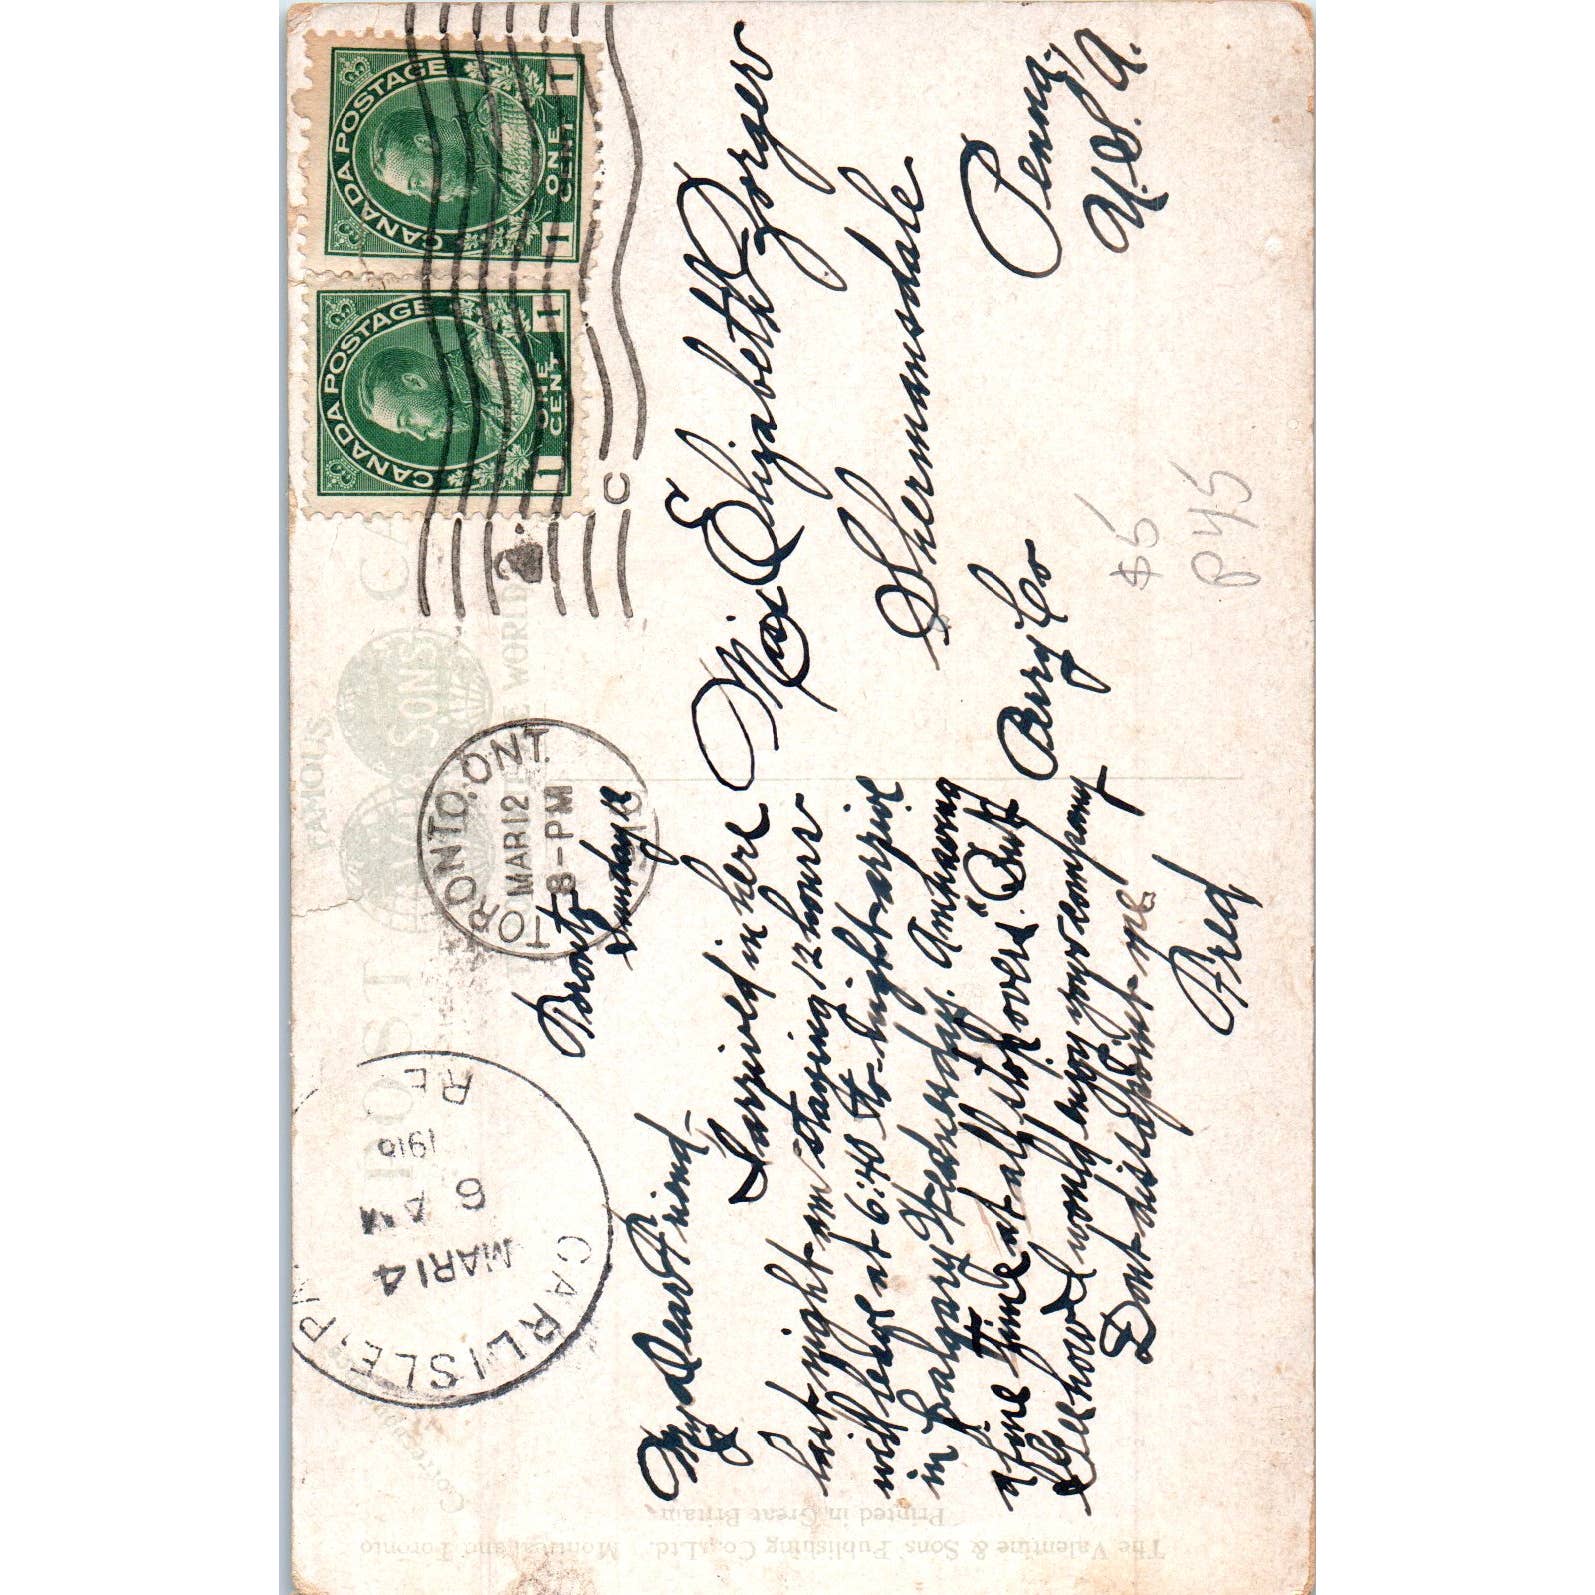 CANADA POSTAGE
1 ONE CENT 1
CANADA POSTAGE
1 ONE CENT 1
C
TORONTO, ONT.
MAR 12
8-PM
CARLISLE, PA
MAR 14
6 AM
1916
RE
FAMOUS
POST CA
SONS
THE WORLD
Toronto
Sunday 12
My Dear Friend-
I arrived in here
last night am staying 12 hours
will leave at 6:40 to-night arrive
in Calgary Wednesday. Am having
a fine time at all stop overs. "But"
Gee how I would enjoy your company
Dont disappoint me
Fred
Miss Elizabeth Zorger
Shermansdale
Perry Co
Penna,
U.S.A.
$5
P45
The Valentine & Sons' Publishing Co., Ltd. Montreal and Toronto
Printed in Great Britain